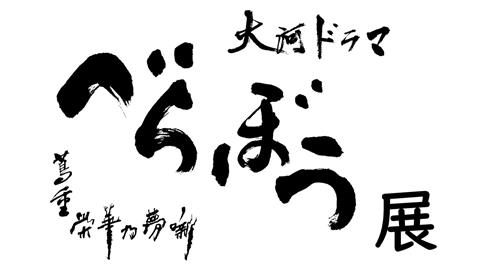 大河ドラマ
べらぼう
蔦重栄華乃夢噺
展